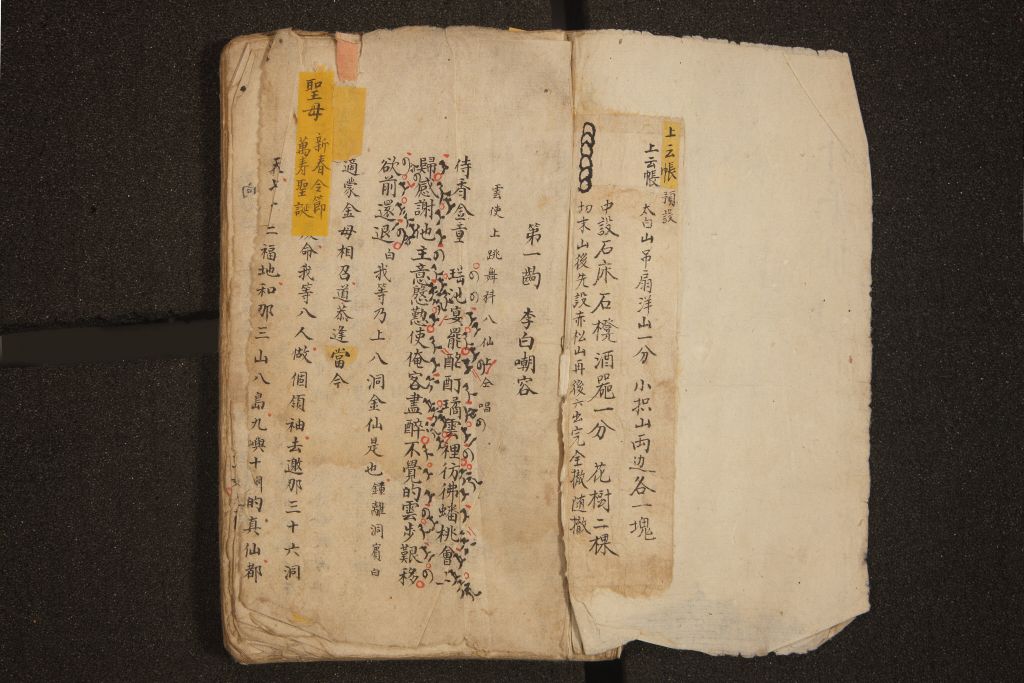 上云帳 預設
上云帳
太白山吊扇洋山一分 小拱山両边各一塊
中設石床石櫈酒器一分 花樹二棵
切末山後先設赤松山再後六出完全撤随撤
第一齣 李白嘲容
雲使上跳舞科八仙上仝唱
侍香金童 瑶池宴罷酩酊璚雲裡彷彿蟠桃會
歸感謝他主意慇懃使俺客盡醉不覺的雲步艱移
欲前還退 白 我等乃上八洞金仙是也 鍾離洞賓白
適蒙金母相召道恭逢當今
聖母
新春令節
萬寿聖誕
命我等八人做個領袖去邀那三十六洞
二福地和那三山八島九嶼十洲的真仙都
向